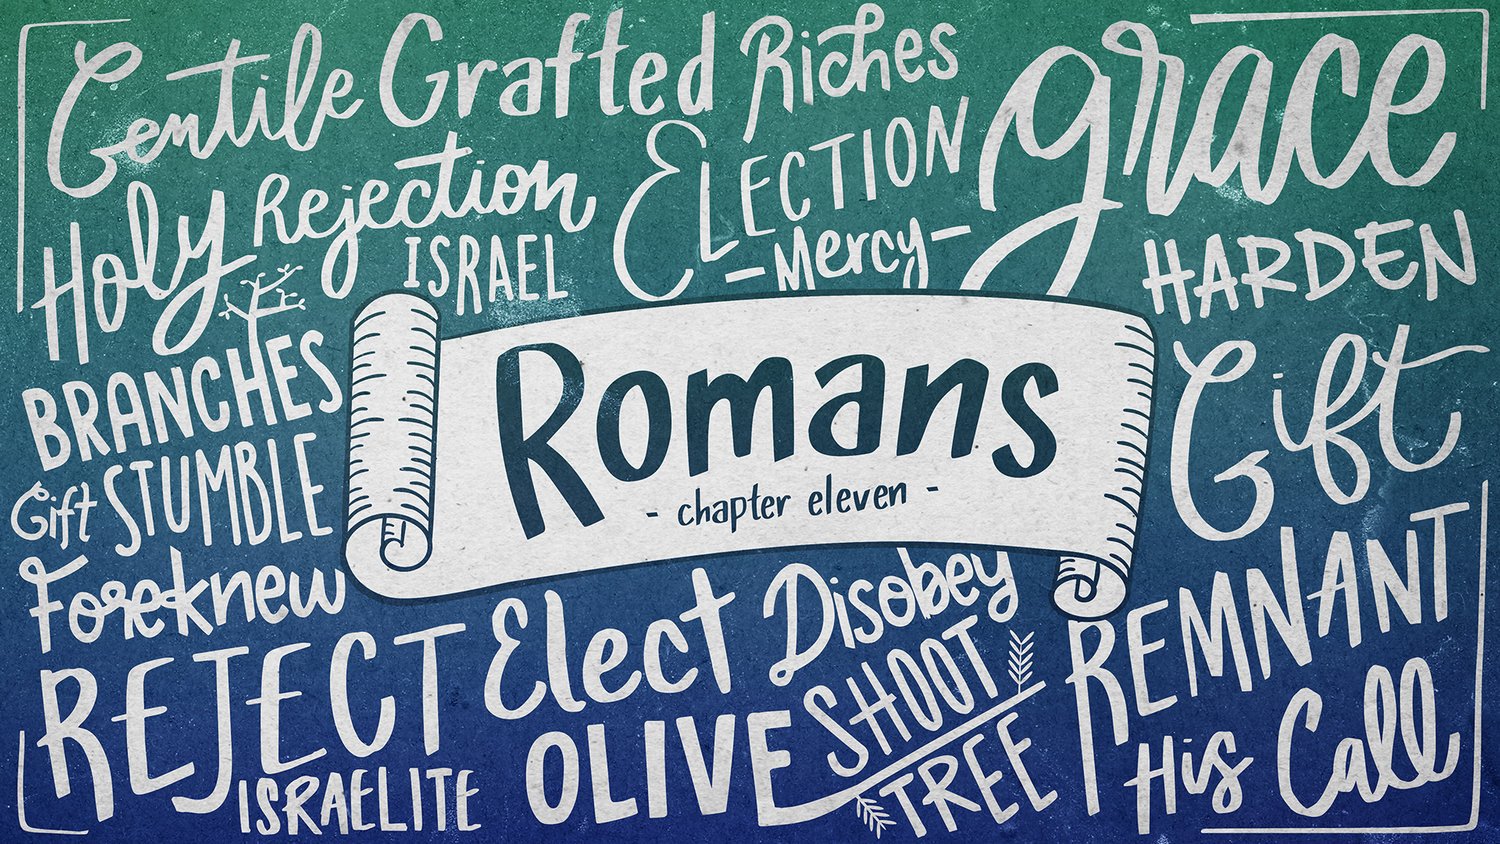 Gentile Grafted Riches grace
Holy Rejection ELECTION
ISRAEL -Mercy- HARDEN
BRANCHES
Romans
- chapter eleven -
Gift
Gift STUMBLE
Foreknew
REJECT Elect Disobey REMNANT
ISRAELITE OLIVE SHOOT TREE His Call